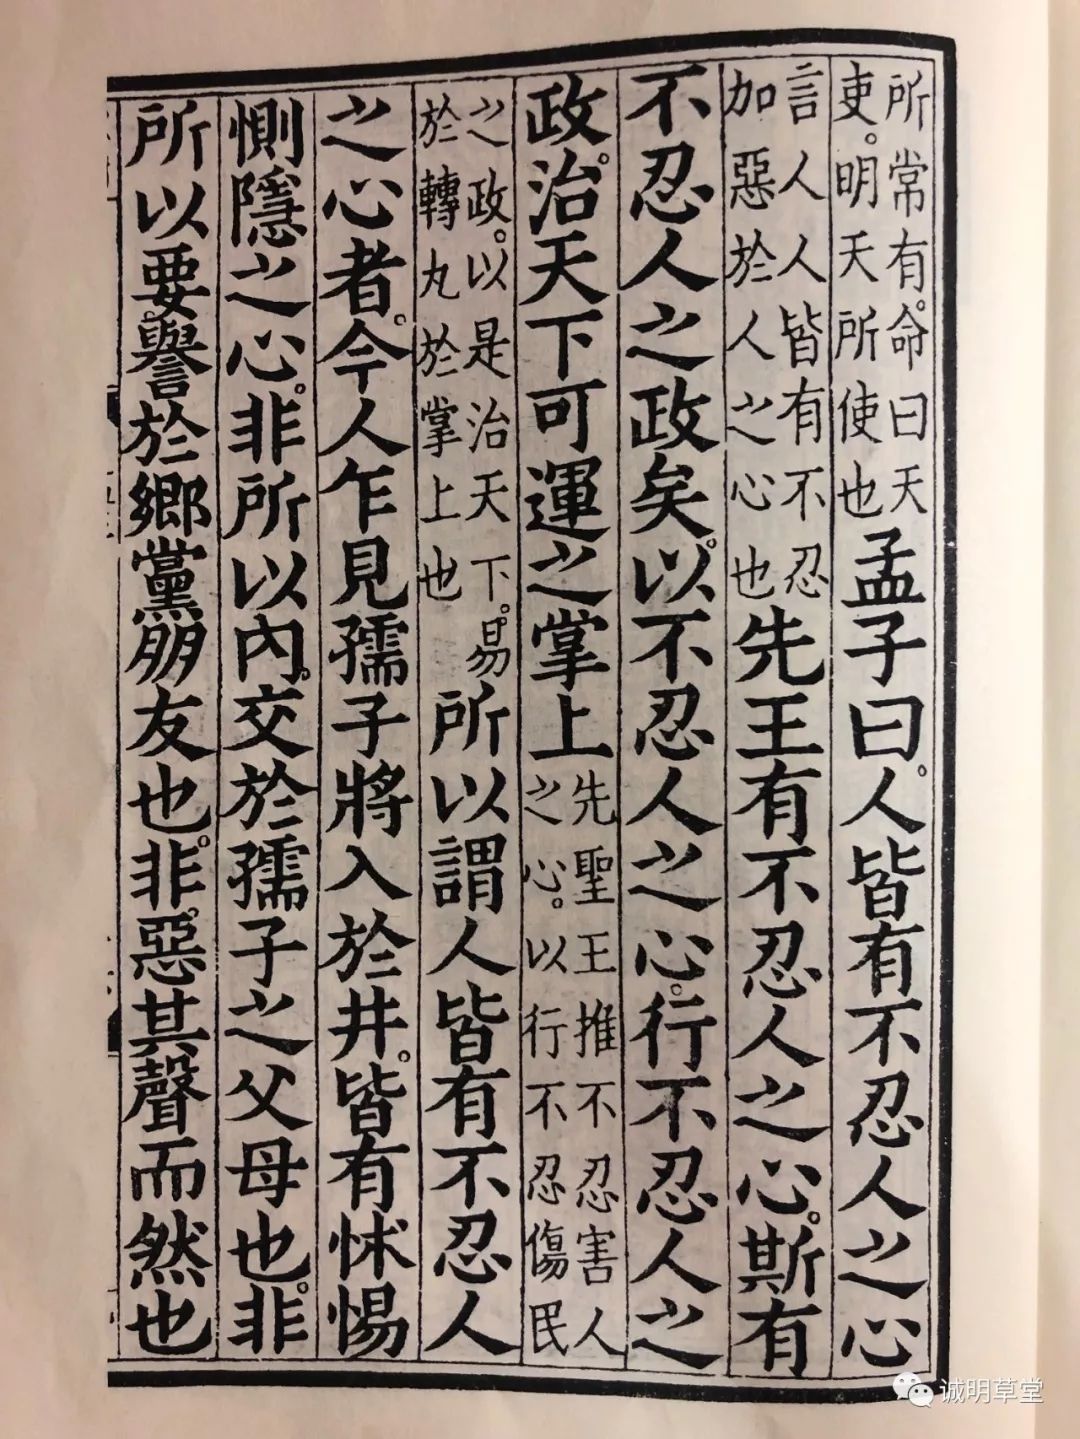 所常有命曰天
吏。明天所使也
孟子曰。人皆有不忍人之心
言人人皆有不忍
加惡於人之心也
先王有不忍人之心。斯有
不忍人之政矣。以不忍人之心。行不忍人之
政。治天下可運之掌上
先聖王推不忍害人
之心。以行不忍傷民
之政。以是治天下。易
於轉丸於掌上也
所以謂人皆有不忍人
之心者。今人乍見孺子將入於井。皆有怵惕
惻隱之心。非所以內。交於孺子之父母也。非
所以要譽於鄉黨朋友也。非。惡其聲而然也
诚明草堂